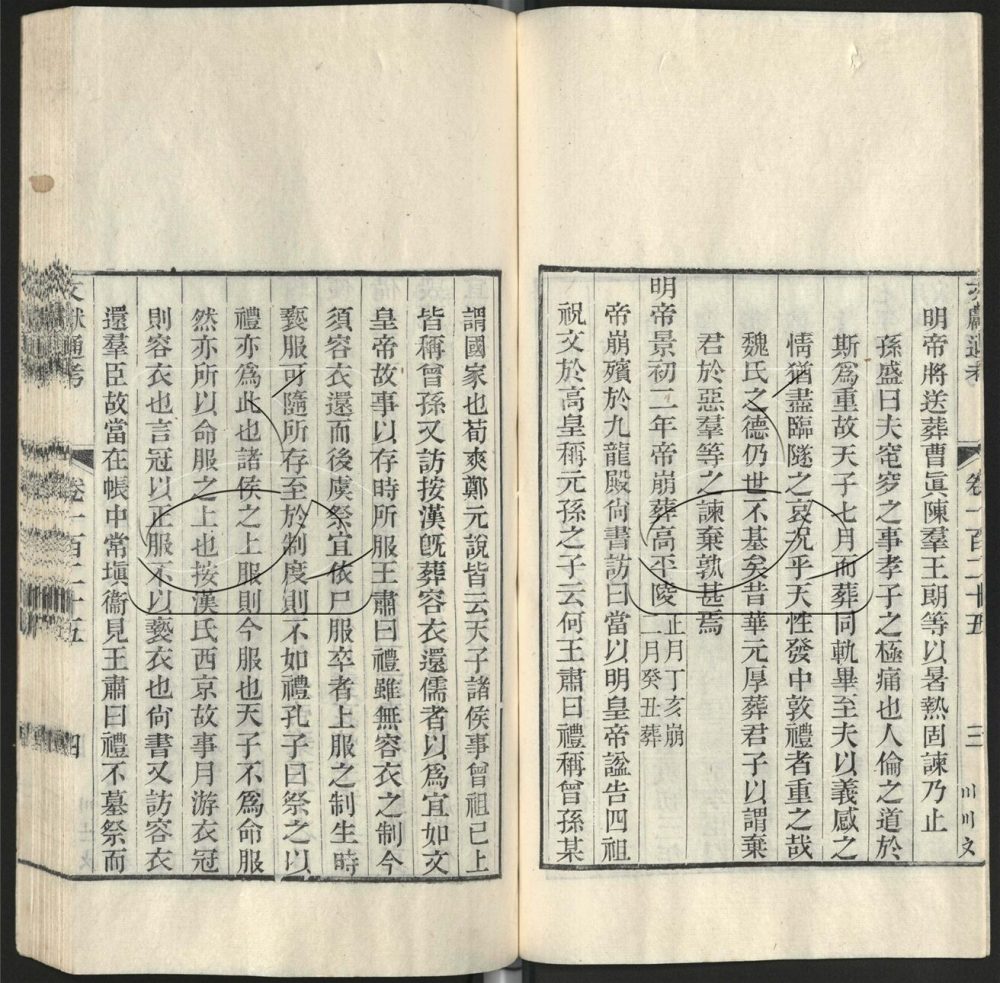 明帝將送葬曹眞陳羣王朗等以暑熱固諫乃止
孫盛曰夫窀穸之事孝子之極痛也人倫之道於
斯爲重故天子七月而葬同軌畢至夫以義感之
情猶盡臨隧之哀況乎天性發中敦禮者重之哉
魏氏之德仍世不基矣昔華元厚葬君子以謂棄
君於惡羣等之諫棄孰甚焉
明帝景初二年帝崩葬高平陵正月丁亥崩
二月癸丑葬
帝崩殯於九龍殿尙書訪曰當以明皇帝諡告四祖
祝文於高皇稱元孫之子云何王肅曰禮稱曾孫某
謂國家也荀爽鄭元說皆云天子諸侯事曾祖已上
皆稱曾孫又訪按漢旣葬容衣還儒者以爲宜如文
皇帝故事以存時所服王肅曰禮雖無容衣之制今
須容衣還而後虞祭宜依尸服卒者上服之制生時
褻服可隨所存至於制度則不如禮孔子曰祭之以
禮亦爲此也諸侯之上服則今服也天子不爲命服
然亦所以命服之上也按漢氏西京故事月游衣冠
則容衣也言冠以正服不以褻衣也尙書又訪容衣
還羣臣故當在帳中常塡衞見王肅曰禮不墓祭而
文獻通考
卷一百二十五
三
川川文
文獻通考
卷一百二十五
四